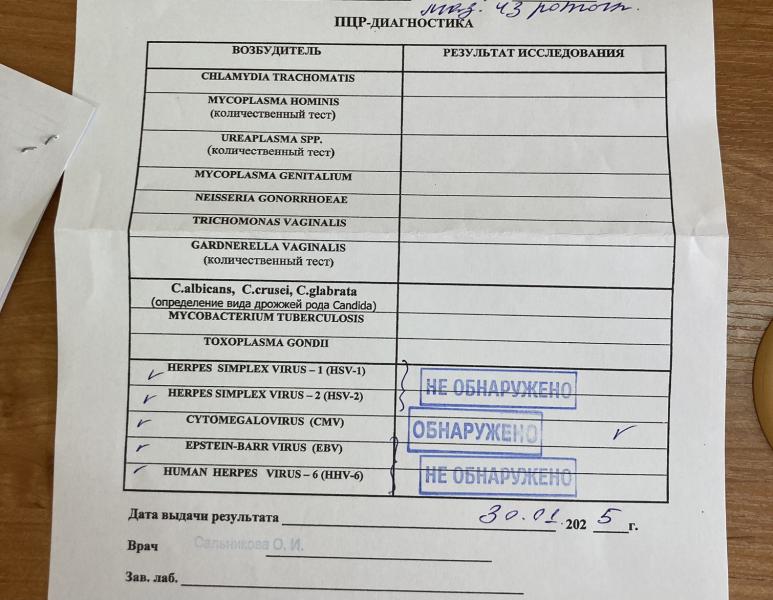 маз. из ротогл.
ПЦР-ДИАГНОСТИКА
ВОЗБУДИТЕЛЬ РЕЗУЛЬТАТ ИССЛЕДОВАНИЯ
CHLAMYDIA TRACHOMATIS
MYCOPLASMA HOMINIS
(количественный тест)
UREAPLASMA SPP.
(количественный тест)
MYCOPLASMA GENITALIUM
NEISSERIA GONORRHOEAE
TRICHOMONAS VAGINALIS
GARDNERELLA VAGINALIS
(количественный тест)
C.albicans, C.crusei, C.glabrata
(определение вида дрожжей рода Candida)
MYCOBACTERIUM TUBERCULOSIS
TOXOPLASMA GONDII
HERPES SIMPLEX VIRUS – 1 (HSV-1)
НЕ ОБНАРУЖЕНО
HERPES SIMPLEX VIRUS – 2 (HSV-2)
CYTOMEGALOVIRUS (CMV) ОБНАРУЖЕНО
EPSTEIN-BARR VIRUS (EBV)
HUMAN HERPES VIRUS – 6 (HHV-6) НЕ ОБНАРУЖЕНО
Дата выдачи результата 30.01.2025 г.
Врач Сальникова О. И.
Зав. лаб.